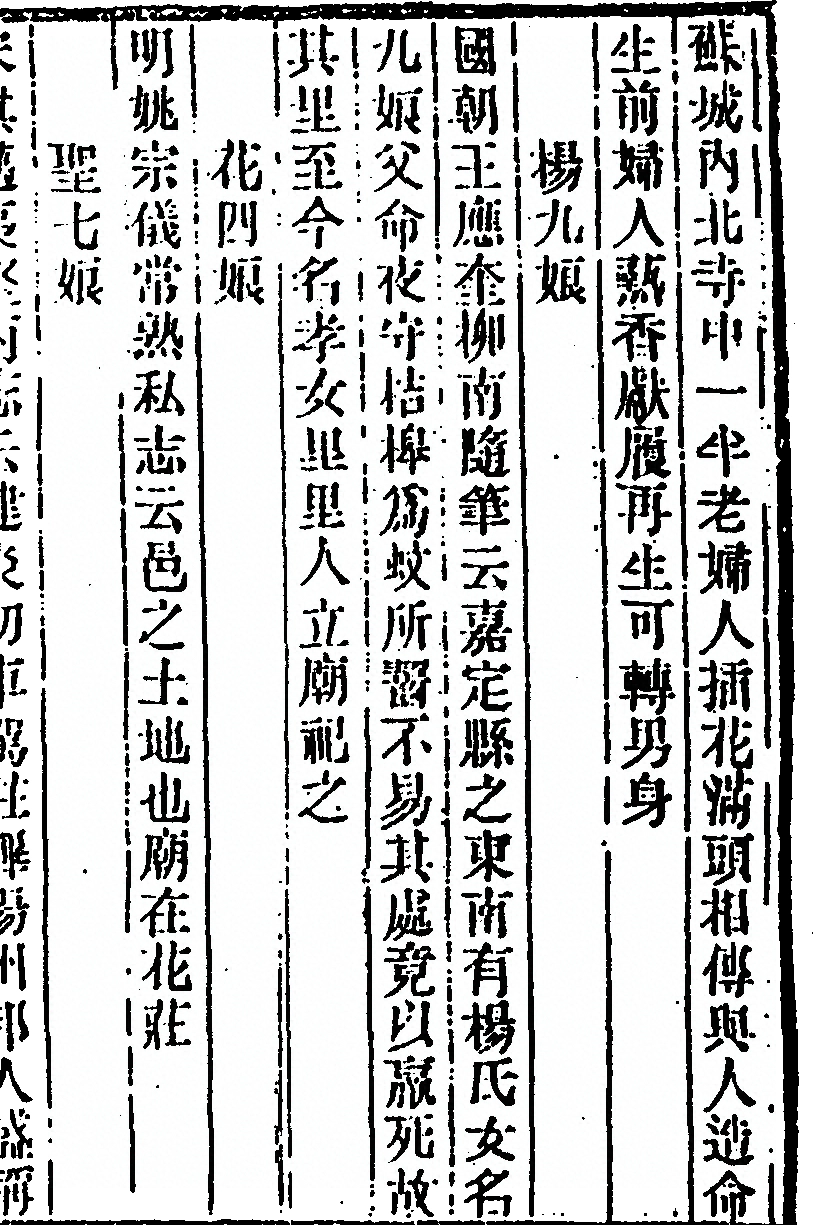 蘇城內北寺中一半老婦人插花滿頭相傳與人造命
生前婦人爇香獻履再生可轉男身
楊九娘
國朝王應奎柳南隨筆云嘉定縣之東南有楊氏女名
九娘父命夜守桔槔爲蚊所嘬不易其處竟以羸死故
其里至今名孝女里里人立廟祀之
花四娘
明姚宗儀常熟私志云邑之土地也廟在花莊
聖七娘